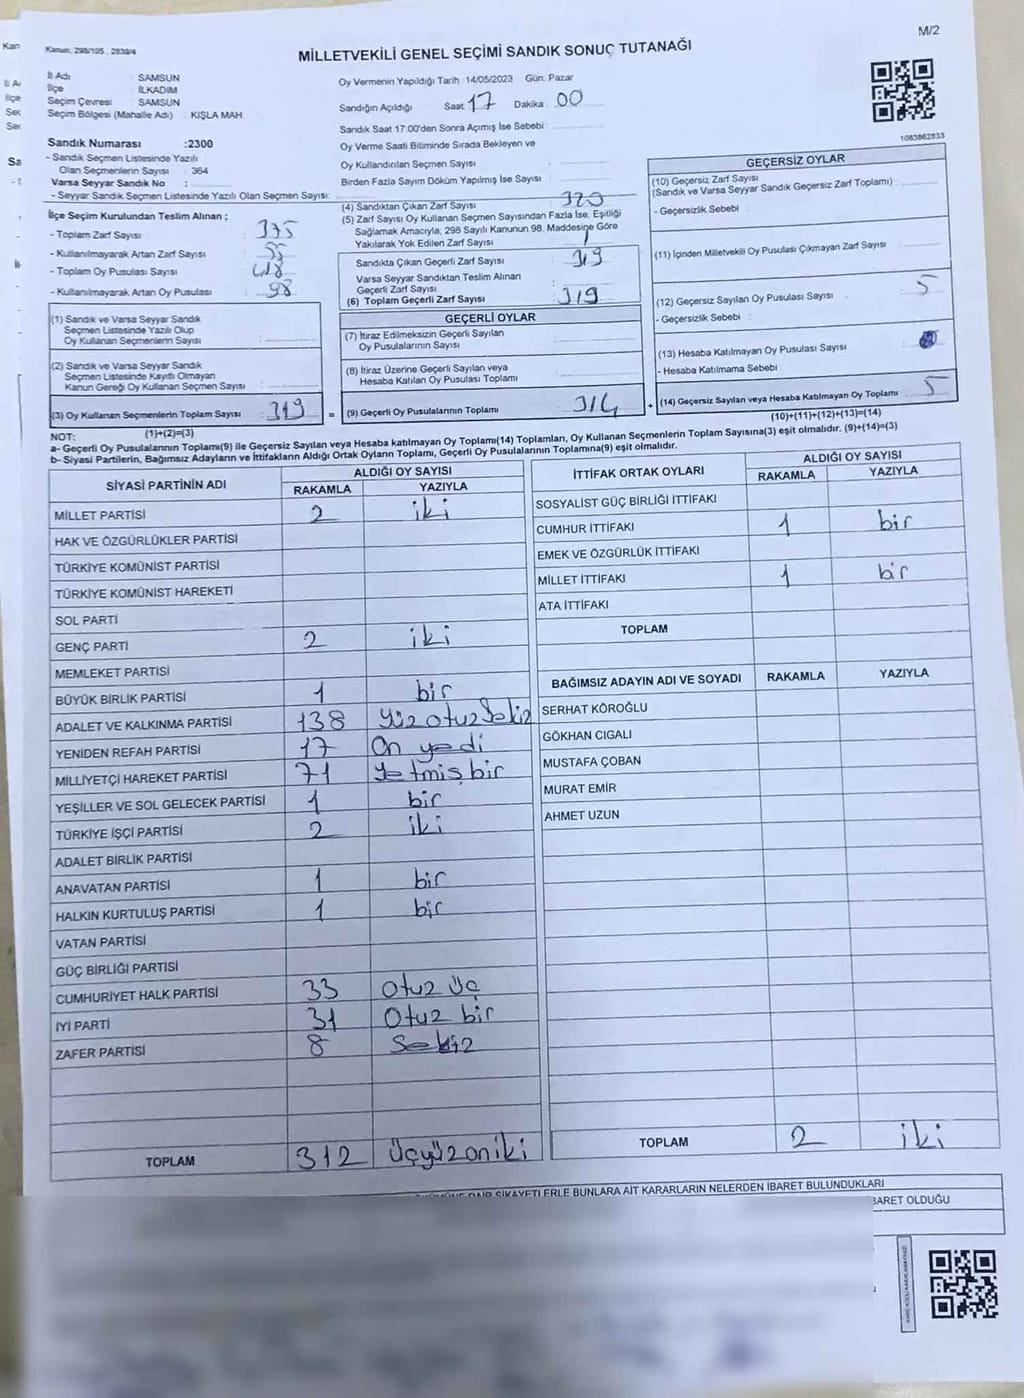 M/2
Kanun: 298/105, 2839/4
MİLLETVEKİLİ GENEL SEÇİMİ SANDIK SONUÇ TUTANAĞI
İl Adı : SAMSUN
İlçe : İLKADIM
Seçim Çevresi : SAMSUN
Seçim Bölgesi (Mahalle Adı) : KIŞLA MAH.
Sandık Numarası :2300
- Sandık Seçmen Listesinde Yazılı
Olan Seçmenlerin Sayısı : 364
Varsa Seyyar Sandık No :
- Seyyar Sandık Seçmen Listesinde Yazılı Olan Seçmen Sayısı:
Oy Vermenin Yapıldığı Tarih :14/05/2023 Gün: Pazar
Sandığın Açıldığı Saat 17 Dakika : 00
Sandık Saat 17:00'den Sonra Açımış İse Sebebi :
Oy Verme Saati Bitiminde Sırada Bekleyen ve
Oy Kullandırılan Seçmen Sayısı :
Birden Fazla Sayım Döküm Yapılmış İse Sayısı :
1083862833
İlçe Seçim Kurulundan Teslim Alınan ;
- Toplam Zarf Sayısı : 375
- Kullanılmayarak Artan Zarf Sayısı : 55
- Toplam Oy Pusulası Sayısı : 418
- Kullanılmayarak Artan Oy Pusulası : 98
(1) Sandık ve Varsa Seyyar Sandık
Seçmen Listesinde Yazılı Olup
Oy Kullanan Seçmenlerin Sayısı :
(2) Sandık ve Varsa Seyyar Sandık
Seçmen Listesinde Kayıtlı Olmayan
Kanun Gereği Oy Kullanan Seçmen Sayısı :
(3) Oy Kullanan Seçmenlerin Toplam Sayısı : 319 =
(1)+(2)=(3)
(4) Sandıktan Çıkan Zarf Sayısı :
(5) Zarf Sayısı Oy Kullanan Seçmen Sayısından Fazla İse, Eşitliği
Sağlamak Amacıyla; 298 Sayılı Kanunun 98. Maddesine Göre
Yakılarak Yok Edilen Zarf Sayısı : 1
Sandıkta Çıkan Geçerli Zarf Sayısı : 319
Varsa Seyyar Sandıktan Teslim Alınan
Geçerli Zarf Sayısı :
(6) Toplam Geçerli Zarf Sayısı : 319
GEÇERLİ OYLAR
(7) İtiraz Edilmeksizin Geçerli Sayılan
Oy Pusulalarının Sayısı :
(8) İtiraz Üzerine Geçerli Sayılan veya
Hesaba Katılan Oy Pusulası Toplamı :
(9) Geçerli Oy Pusulalarının Toplamı : 314 +
GEÇERSİZ OYLAR
(10) Geçersiz Zarf Sayısı
(Sandık ve Varsa Seyyar Sandık Geçersiz Zarf Toplamı) :
- Geçersizlik Sebebi :
(11) İçinden Milletvekili Oy Pusulası Çıkmayan Zarf Sayısı :
(12) Geçersiz Sayılan Oy Pusulası Sayısı : 5
- Geçersizlik Sebebi :
(13) Hesaba Katılmayan Oy Pusulası Sayısı :
- Hesaba Katılmama Sebebi :
(14) Geçersiz Sayılan veya Hesaba Katılmayan Oy Toplamı : 5
(10)+(11)+(12)+(13)=(14)
NOT:
a- Geçerli Oy Pusulalarının Toplamı(9) ile Geçersiz Sayılan veya Hesaba katılmayan Oy Toplamı(14) Toplamları, Oy Kullanan Seçmenlerin Toplam Sayısına(3) eşit olmalıdır. (9)+(14)=(3)
b- Siyasi Partilerin, Bağımsız Adayların ve İttifakların Aldığı Ortak Oyların Toplamı, Geçerli Oy Pusulalarının Toplamına(9) eşit olmalıdır.
SİYASİ PARTİNİN ADI ALDIĞI OY SAYISI
RAKAMLA YAZIYLA
MİLLET PARTİSİ 2 iki
HAK VE ÖZGÜRLÜKLER PARTİSİ
TÜRKİYE KOMÜNİST PARTİSİ
TÜRKİYE KOMÜNİST HAREKETİ
SOL PARTİ
GENÇ PARTİ 2 iki
MEMLEKET PARTİSİ
BÜYÜK BİRLİK PARTİSİ 1 bir
ADALET VE KALKINMA PARTİSİ 138 Yüz otuz Sekiz
YENİDEN REFAH PARTİSİ 17 On yedi
MİLLİYETÇİ HAREKET PARTİSİ 71 Yetmiş bir
YEŞİLLER VE SOL GELECEK PARTİSİ 1 bir
TÜRKİYE İŞÇİ PARTİSİ 2 iki
ADALET BİRLİK PARTİSİ
ANAVATAN PARTİSİ 1 bir
HALKIN KURTULUŞ PARTİSİ 1 bir
VATAN PARTİSİ
GÜÇ BİRLİĞİ PARTİSİ
CUMHURİYET HALK PARTİSİ 33 Otuz üç
İYİ PARTİ 31 Otuz bir
ZAFER PARTİSİ 8 Sekiz
TOPLAM 312 Üçyüzoniki
İTTİFAK ORTAK OYLARI ALDIĞI OY SAYISI
RAKAMLA YAZIYLA
SOSYALİST GÜÇ BİRLİĞİ İTTİFAKI
CUMHUR İTTİFAKI 1 bir
EMEK VE ÖZGÜRLÜK İTTİFAKI
MİLLET İTTİFAKI 1 bir
ATA İTTİFAKI
TOPLAM
BAĞIMSIZ ADAYIN ADI VE SOYADI RAKAMLA YAZIYLA
SERHAT KÖROĞLU
GÖKHAN CIGALI
MUSTAFA ÇOBAN
MURAT EMİR
AHMET UZUN
TOPLAM 2 iki
ŞİKAYETLERLE BUNLARA AİT KARARLARIN NELERDEN İBARET BULUNDUKLARI
BARET OLDUĞU